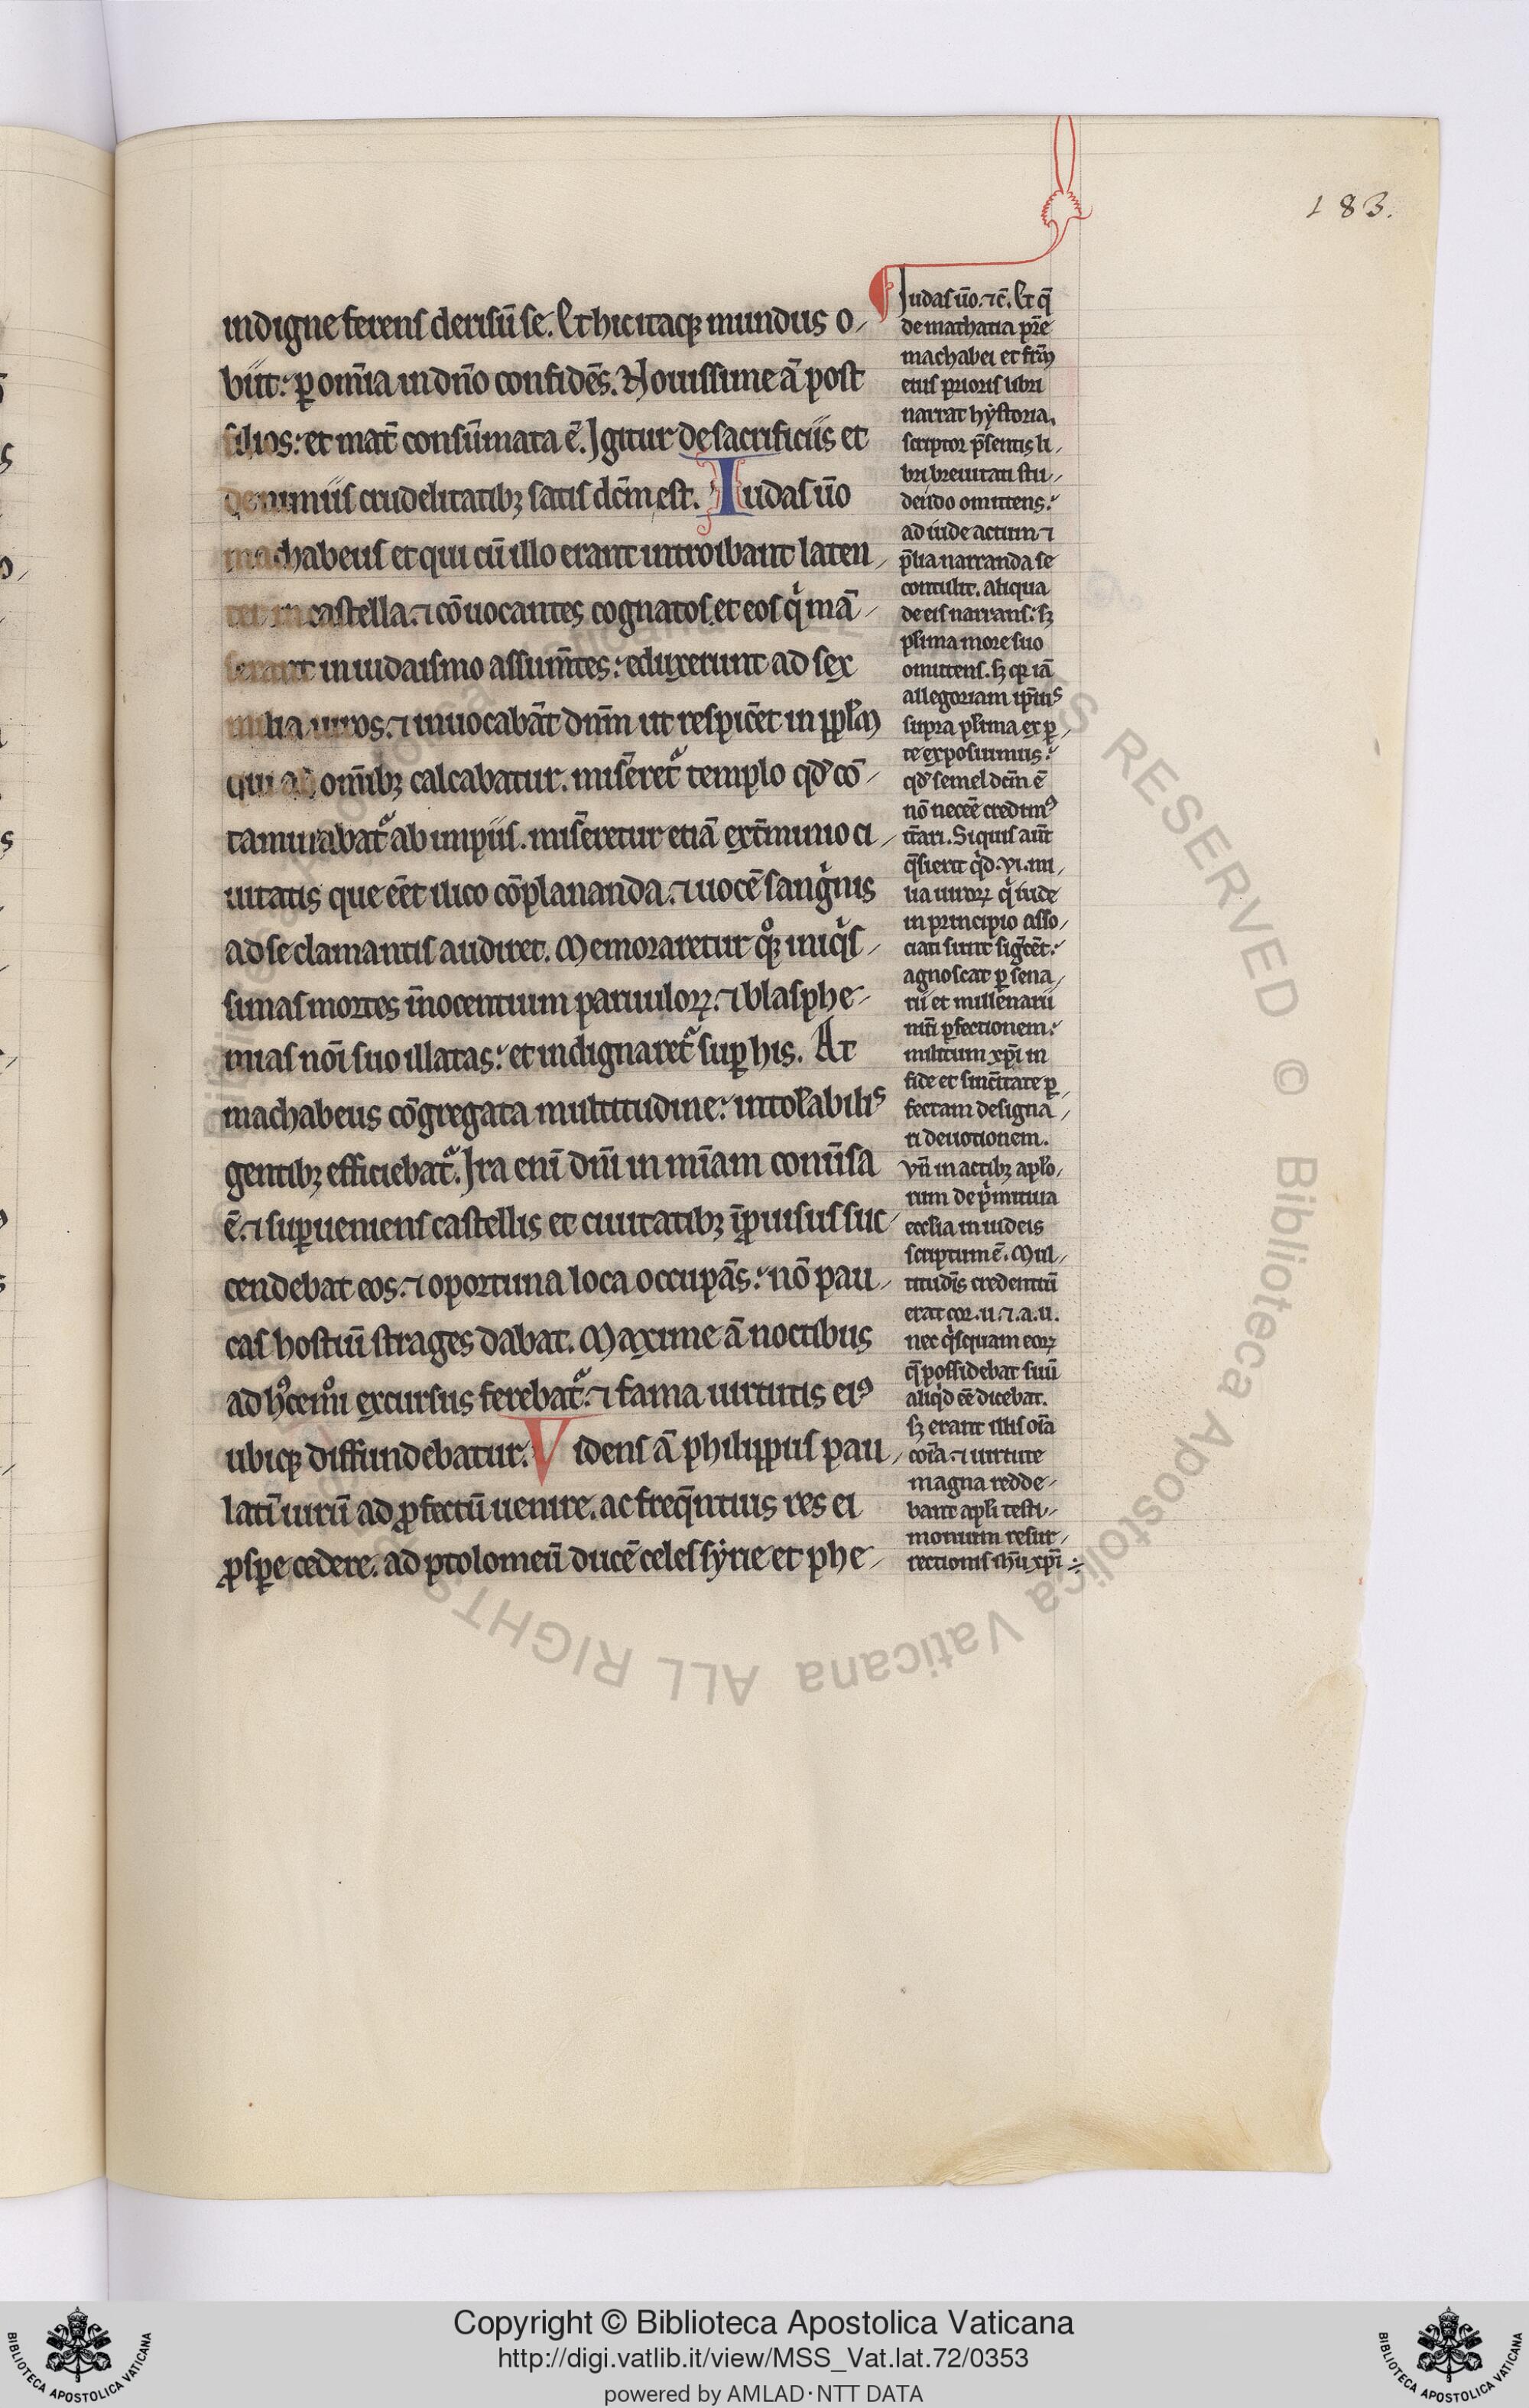 183.
indigne ferens derisũ se. Et hic itaqꝫ mundus o-
biit: ꝑ om̃ia in dño confidẽs. Nouissime ã post
filios: et mat̃ consũmata ẽ. Igitur de sacrificiis et
de nimiis crudelitatibꝫ satis dc̃m est. Iudas ũo
machabeus et qui cũ illo erant introibant laten-
ter in castella. ⁊ cõuocantes cognatos. et eos qͥ mã-
serant in iudaismo assum̃tes: eduxerunt ad sex
milia uiros. ⁊ inuocabãt dñm ut respicẽt in ppl̃m
qui ab om̃ibꝫ calcabatur. mis̃eret᷑ templo qd̓ cõ-
taminabat᷑ ab impiis. mis̃eretur etiã ext̃minio ci-
uitatis que eẽt ilico cõplananda. ⁊ uocẽ sangͥnis
ad se clamantis audiret. Memoraretur qͦꝫ iniqͥs-
simas mortes ĩnocentium paruulorꝝ. ⁊ blasphe-
mias nõi suo illatas: et indignaret᷑ suꝑ his. At
machabeus cõgregata multitudine: intol̃abilis
gentibꝫ efficiebat᷑. Ira eni dñi in mĩam conũsa
ẽ. ⁊ suꝑueniens castellis et ciuitatibꝫ ĩꝓuisus suc-
cendebat eos. ⁊ oportuna loca occupãs: nõ pau-
cas hostiũ strages dabat. Maxime ã noctibus
ad hꝰcemͦi excursus ferebat᷑. ⁊ fama uirtutis eiꝰ
ubiqꝫ diffundebatur. Videns ã philippus pau-
latĩ uirũ ad ꝓfectũ uenire. ac freq̃ntius res ei
ꝓsꝑe cedere. ad ptolomeũ ducẽ celessyrie et phe-
Iudas ũo. ⁊c̃. Et q̃
de mathatia pr̃e
machabei et fr̃m
eius prioris libri
narrat hystoria.
scriptor p̃sentis li-
bri breuitati stu-
dendo omittens:
ad iude actum ⁊
p̃lia narranda se
contulit. aliqua
de eis narrans: sꝫ
pl̃ima more suo
omittens. sꝫ qꝛ iã
allegoriam ip̃ius
supra pl̃ima ex ꝑ-
te exposuimus:
qd̓ semel dc̃m ẽ
nõ neceẽ credimꝰ
it̃ari. Si quis aũt
q̃sierit qͥd. vi. mi-
lia uirorꝝ qͥ iude
in principio asso-
ciati sunt sigͥcẽt:
agnoscat ꝑ sena-
rii et millenarii
nũi ꝑfectionem:
militum xp̃i in
fide et sinc̃itate ꝑ-
fectam designa-
ri deuotionem.
Vñ in actibꝫ apl̃o-
rum de pͥmitiua
eccl̃ia in iudeis
scriptum ẽ. Mul-
titudĩs credentiũ
erat cor. u. ⁊. a. u.
nec qͥsquam eorꝝ
q̃ possidebat suũ
aliqͥd eẽ dicebat.
sꝫ erant illis oĩa
coĩa. ⁊ uirtute
magna redde-
bant apl̃i testi-
monium resur-
rectionis ih̃u xp̃i
Copyright © Biblioteca Apostolica Vaticana
http://digi.vatlib.it/view/MSS_Vat.lat.72/0353
powered by AMLAD·NTT DATA
BIBLIOTECA APOSTOLICA VATICANA
BIBLIOTECA APOSTOLICA VATICANA